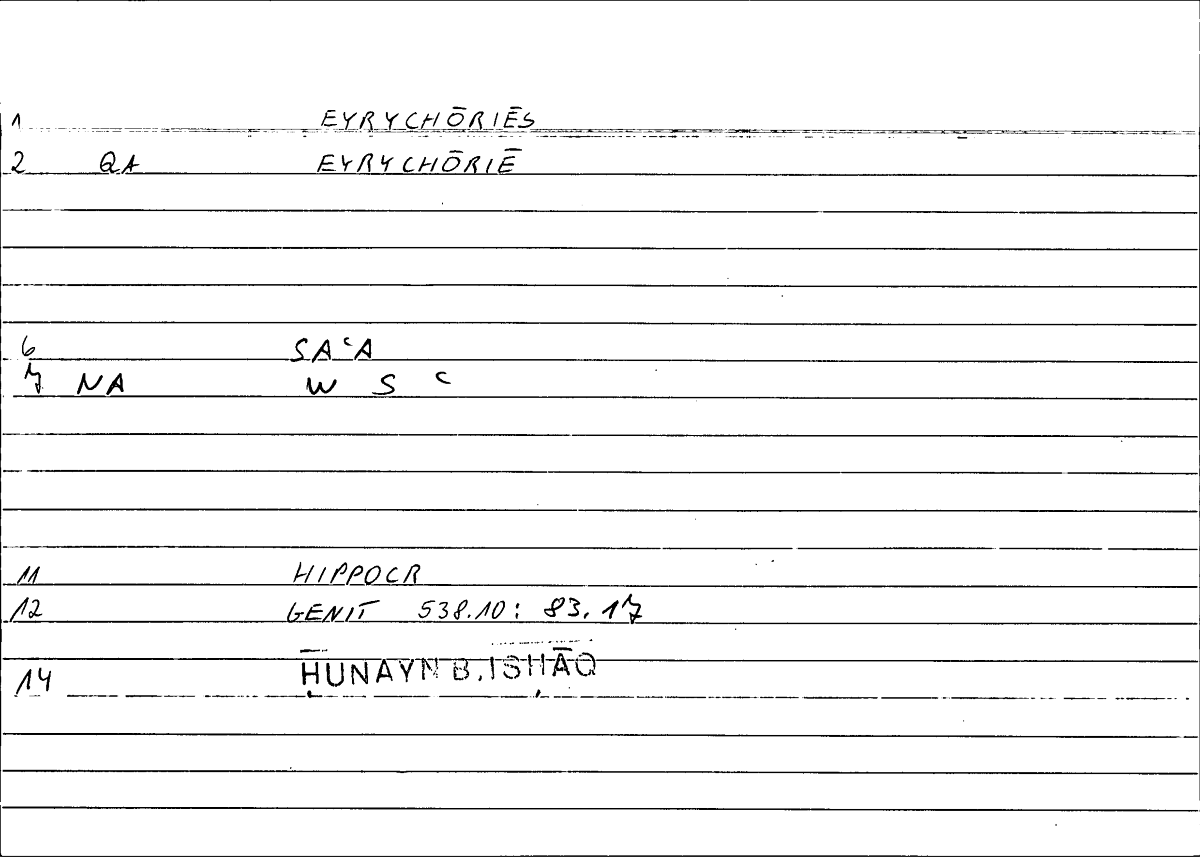 1 EYRYCHŌRIĒS
2 QA EYRYCHŌRIĒ
6 SAᶜA
7 NA W S ᶜ
11 HIPPOCR
12 GENIT 538.10: 83.17
14 ḤUNAYN B. ISḤĀQ